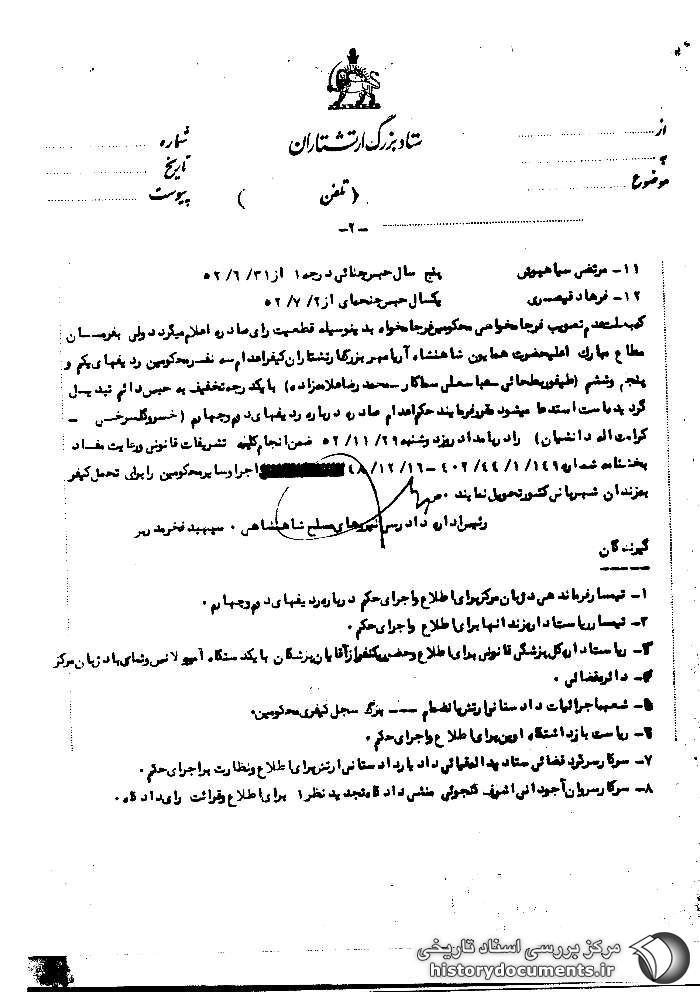 ستاد بزرگ ارتشتاران
از
شماره
به
تاریخ
موضوع
پیوست
( تلفن )
-۲-
۱۱- مرتضی سیاهپوش پنج سال حبس جنائی درجه ۱ از ۵۲/۶/۳۱
۱۲- فرهاد قیصری یکسال حبس جنحه‌ای از ۵۲/۷/۲
که بعلت عدم تصویب فرجامخواهی محکومین فرجامخواه بدینوسیله قطعیت رای صادره اعلام میگردد ولی بفرمان
مطاع مبارک اعلیحضرت همایون شاهنشاه آریامهر بزرگ ارتشتاران کیفر اعدام سه نفر محکومین ردیفهای یکم و
پنجم وششم (طیفور بطحائی - عباسعلی سماکار - محمد رضا علامه‌زاده) با یکدرجه تخفیف به حبس دائم تبدیل
گردیده است استدعا میشود مقرر فرمایند حکم اعدام صادره درباره ردیفهای دوم و چهارم (خسرو گلسرخی -
کرامت اله دانشیان) را در بامداد روز دوشنبه ۵۲/۱۱/۲۹ ضمن انجام کلیه تشریفات قانونی ورعایت مفاد
بخشنامه شماره ۴۰۲/۴۴/۱/۱۴۹ - ۴۸/۱۲/۱۶ اجرا وسایر محکومین را برای تحمل کیفر
بزندان شهربانی کشور تحویل نمایند .
رئیس اداره دادرسی نیروهای مسلح شاهنشاهی . سپهبد فخر مدرس
گیرندگان
۱- تیمسار فرماندهی دژبان مرکز برای اطلاع واجرای حکم درباره ردیفهای دوم وچهارم .
۲- تیمسار ریاست اداره زندانها برای اطلاع واجرای حکم .
۳- ریاست اداره کل پزشکی قانونی برای اطلاع وحضور یکنفر از آقایان پزشکان با یکدستگاه آمبولانس در پادژبان مرکز
۴- دایره قضائی .
۵- شعبه اجرائیات دادستانی ارتش بانضمام --- برگ سجل کیفری محکومین.
۶- ریاست بازداشتگاه اوین برای اطلاع واجرای حکم .
۷- سرکار سرگرد قضائی ستاد یدالله قیائی دادیار دادستانی ارتش برای اطلاع ونظارت بر اجرای حکم .
۸- سرکار سروان آجودانی اشرف گنجوئی منشی دادگاه تجدید نظر ۱ برای اطلاع وقرائت رای دادگاه .
مرکز بررسی اسناد تاریخی
historydocuments.ir